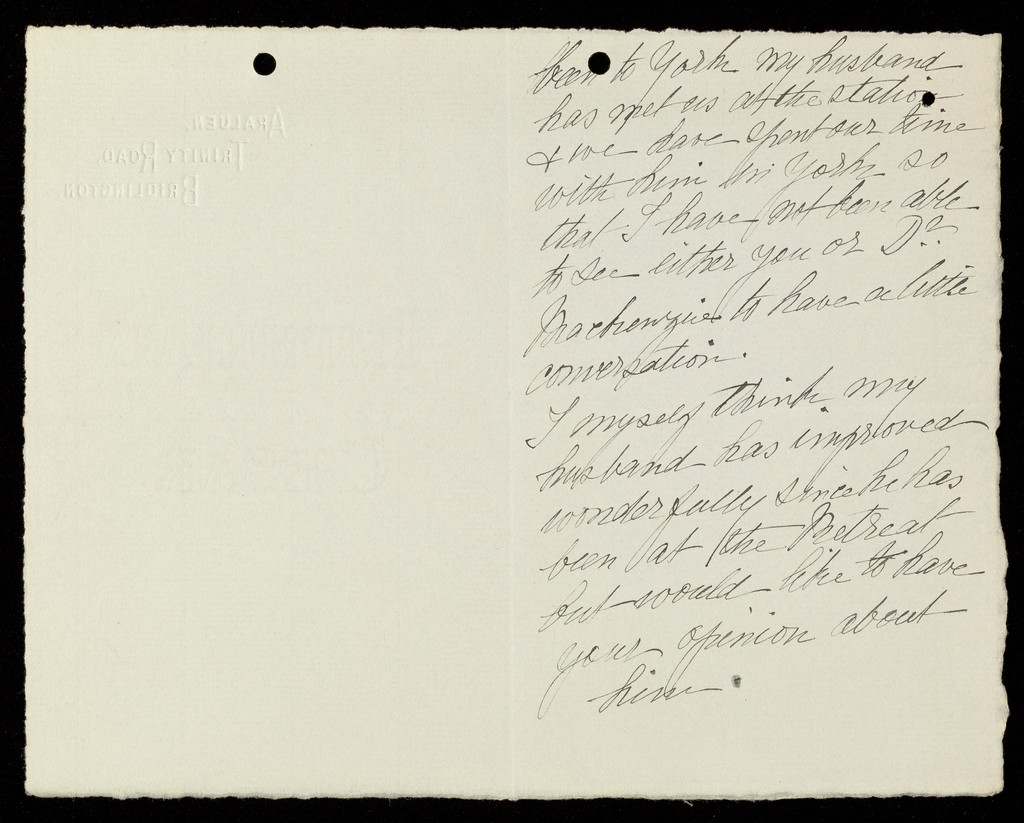 ARALUEN,
TRINITY ROAD,
BRIDLINGTON
been to York my husband
has met us at the station
& we have spent our time
with him in York so
that I have not been able
to see either you or Dr.
Mackenzie to have a little
conversation.
I myself think my
husband has improved
wonderfully since he has
been at the Retreat
but would like to have
your opinion about
him.